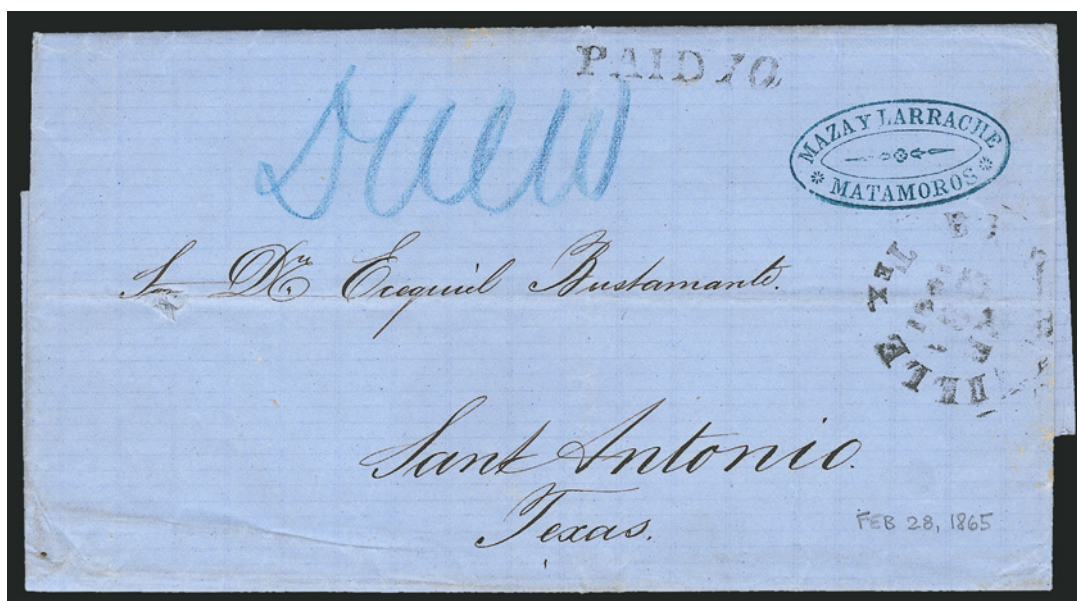 PAID 10
MAZA Y LARRACHE
MATAMOROS
Ezequiel Bustamante.
Sant Antonio.
Texas.
FEB 28, 1865
TEX